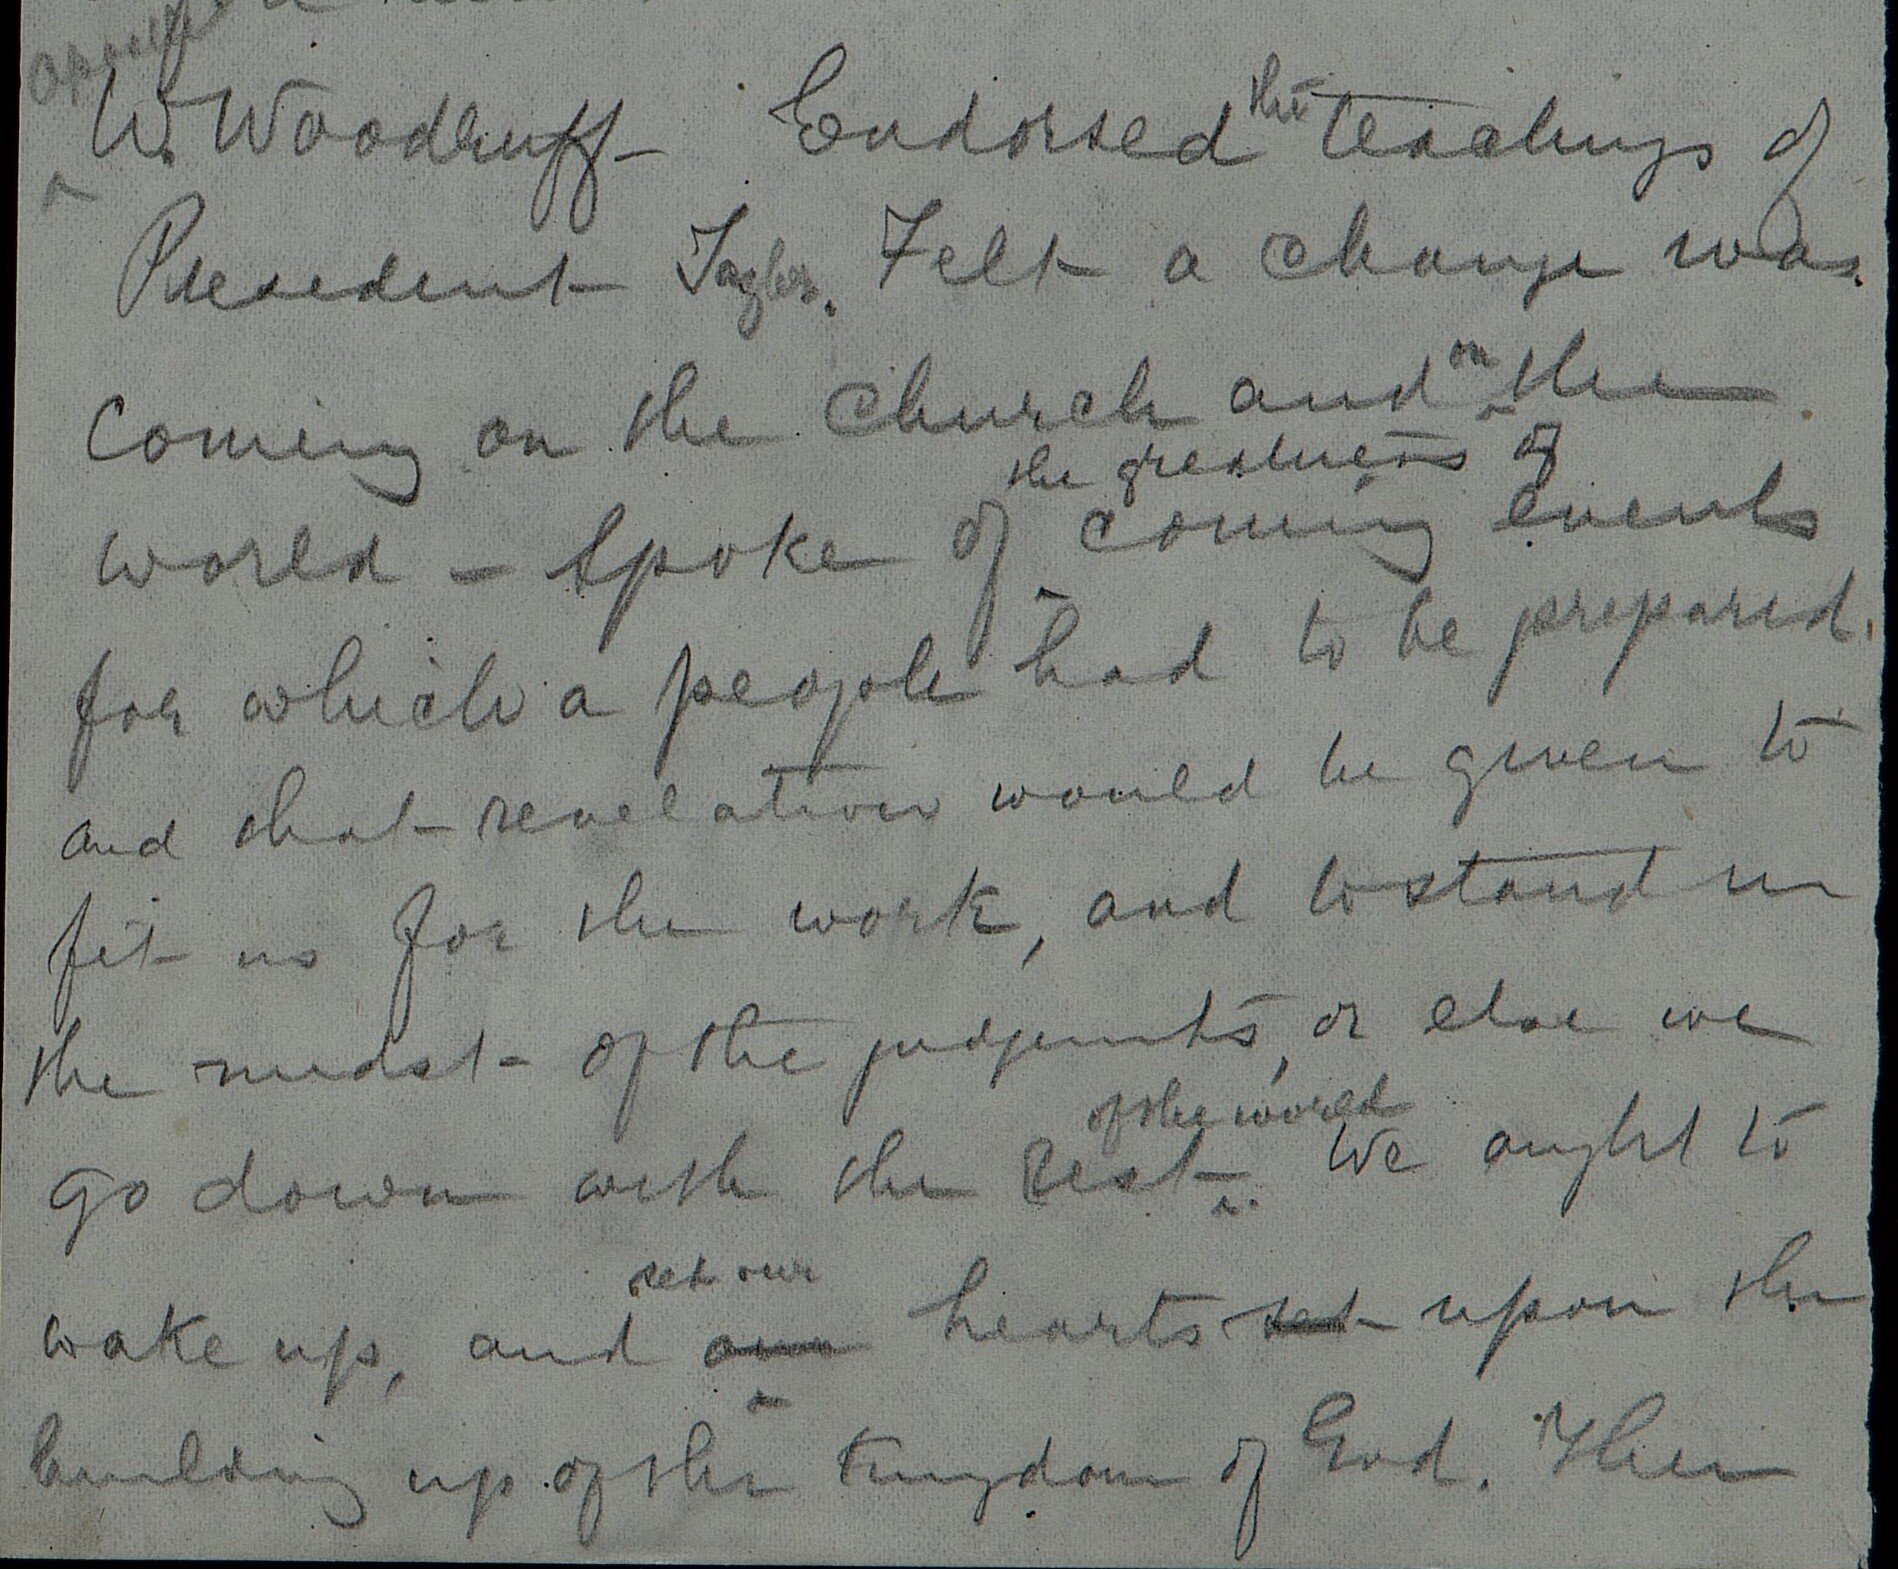 W. Woodruff - Endorsed the teachings of
President Taylor. Felt a change was
coming on the church and on the
the greatness of
world - Spoke of coming events
for which a people had to be prepared.
and that revelation would be given to
fit us for the work, and to stand in
the midst of the judgments, or else we
of the world
go down with the rest. We ought to
set our
wake up, and our hearts set upon the
building up of the Kingdom of God. Then